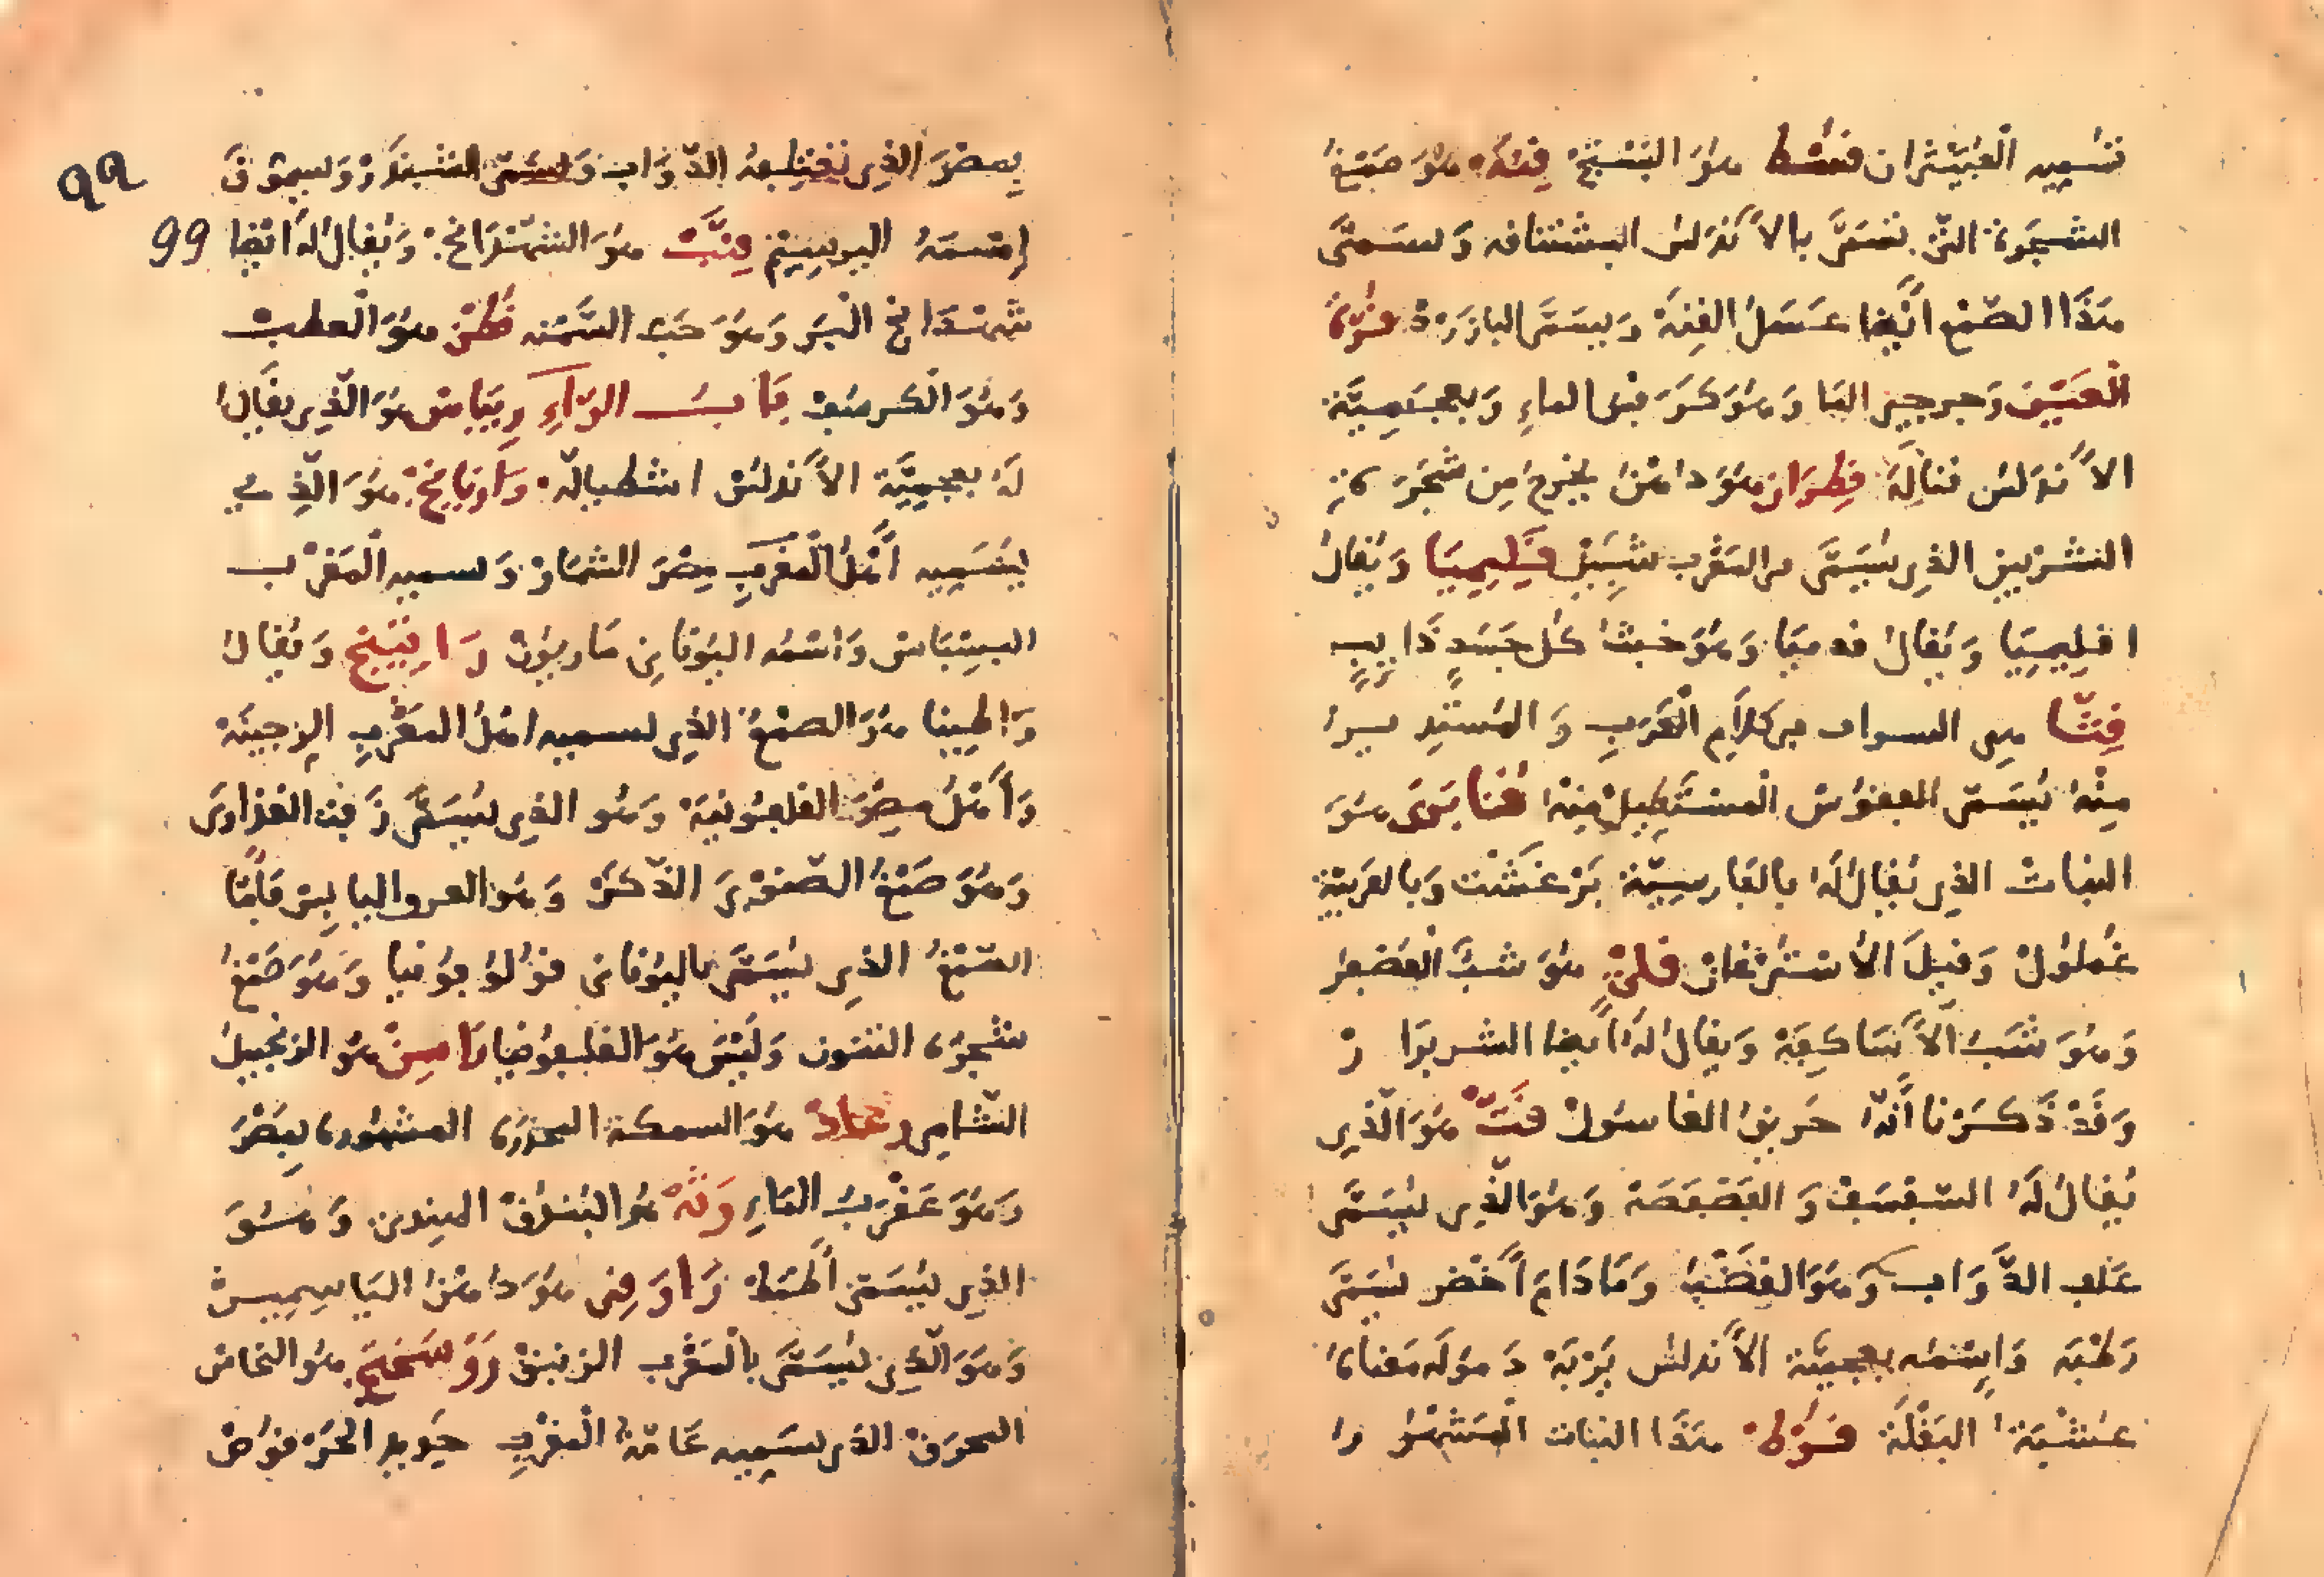 تسميه العبيثران قسط هو البستج قنة هو صمغ
الشجرة التي تسمى بالأندلس البشتناقه ويسمى
هذا الصمغ أيضا عسل القنة ويسمى البازرد قرة
العين وجرجير الما وهو كرفس الماء وبعجمية
الأندلس قناله قطران هو دهن يخرج من شجرة
الشربين الذي يسمى في المغرب شبين قليميا ويقال
اقليميا ويقال قدميا وهو خبث كل جسد ذايب
قثا هي في كلام العرب والمستدير
منه يسمى الفقوس المستطيل منه قنابرى هو
النبات الذي يقال له بالفارسية برغشت وبالعربية
غملول وقيل الأسترغاز قلي هو شب العصفر
وهو شب الأساكفة ويقال له أيضا
وقد ذكرنا أنه حريق الغاسول قت هو الذي
يقال له السفسف والفصفصة وهو الذي يسمى
علف الدواب وهو القضب وما دام أخضر يسمى
رطبه واسمه بعجمية الأندلس يربه دموله معناه
عشبة البغلة قرط هذا النبات المشهور
99
99
بمصر الذي تعتلفه الدواب ويسمى
إسمه البرسيم قنب هو الشهدانج ويقال له أيضا
شهدانج البر وهو حب السمنه قطن هو العطب
وهو الكرسف باب الراء ريباس هو الذي يقال
له بعجمية الأندلس اشطباله رازيانج هو الذي
يسميه أهل المغرب مصر الشمار وسميه المغرب
البسباس واسمه اليوناني ماريون راتينج ويقال
راطينا هو الصمغ الذي يسميه أهل المغرب الرجينة
وأهل مصر القلفونية وهو الذي يسمى زفت الغزاوى
وهو صمغ الصنوبر الذكر وهو اليابس فأما
الصمغ الذي يسمى باليوناني قولوفونيا وهو صمغ
شجرة التنوب وليس هو القلفونيا راسن هو الزنجبيل
الشامي رعاد هو السمكة المخدرة المشهورة بمصر
وهو عقرب الماء رته هو البندق الهندي وهو
الذي يسمى أطمط رازقي هو دهن الياسمين
وهو الذي يسمى بالمغرب الزنبق روسختج هو النحاس
المحرق الذي يسميه عامة المغرب حديد الحرقوص